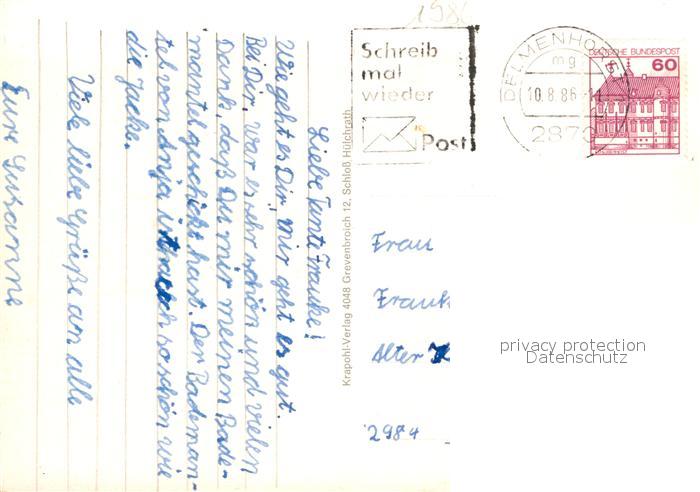 1986
Schreib
mal
wieder
Post
DELMENHORST
mg
10.8.86-11
2870
DEUTSCHE BUNDESPOST
60
Liebe Tante Frauke!
Wie geht es Dir, mir geht es gut.
Bei Dir, war es sehr schön und vielen
Dank, daß Du mir meinen Bade-
mantel geschickt hast. Der Bademan-
tel von Anja ist auch so schön wie
die Jacke.
Viele liebe Grüße an alle
Eure Susanne
Krapohl-Verlag 4048 Grevenbroich 12, Schloß Hülchrath
Frau
Frauk
Alter
2984
privacy protection
Datenschutz